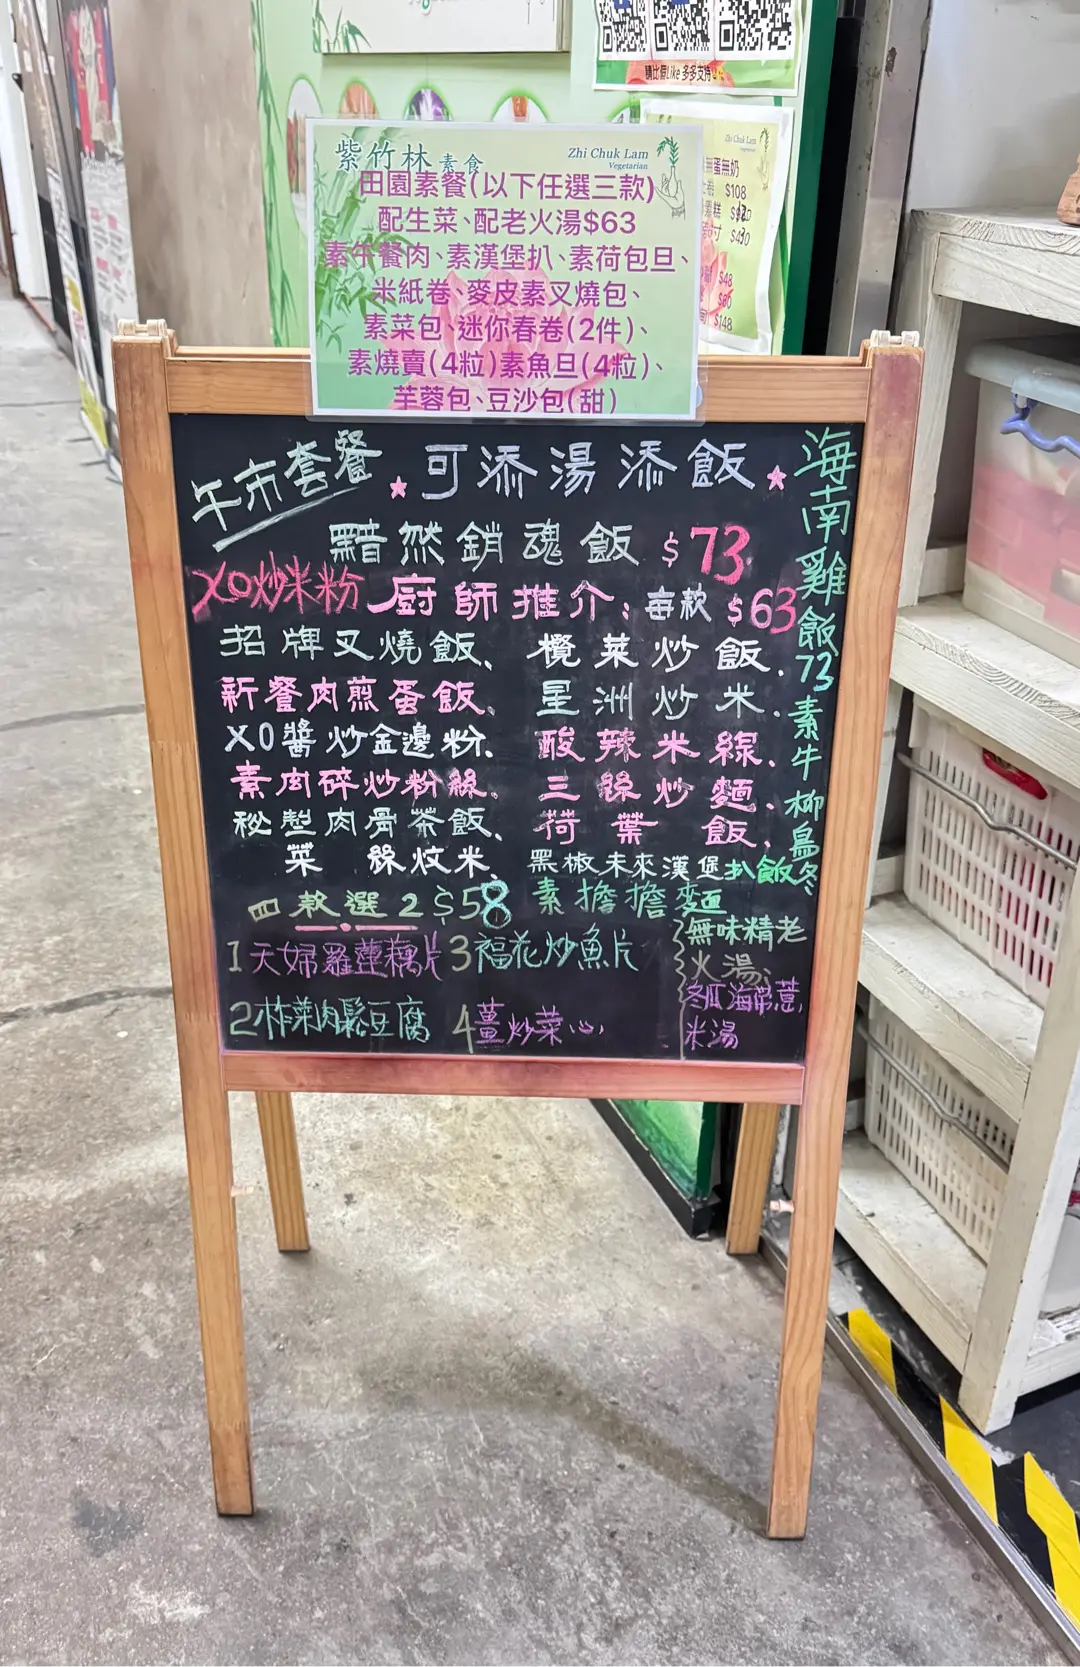 請比個Like 多多支持
紫竹林素食
Zhi Chuk Lam
Vegetarian
田園素餐(以下任選三款)
配生菜、配老火湯$63
素午餐肉、素漢堡扒、素荷包旦、
米紙卷、麥皮素叉燒包、
素菜包、迷你春卷(2件)、
素燒賣(4粒)素魚旦(4粒)、
芋蓉包、豆沙包(甜)
Zhi Chuk Lam
蛋無奶
$108
$48
$148
午市套餐 可添湯添飯
黯然銷魂飯 $73
XO炒米粉 廚師推介:每款 $63
招牌叉燒飯、 欖菜炒飯、
新餐肉煎蛋飯、 星洲炒米、
XO醬炒金邊粉、 酸辣米線、
素肉碎炒粉絲、 三絲炒麵、
秘製肉骨茶飯、 荷葉飯、
菜絲炆米、 黑椒未來漢堡扒飯
四款選2 $58 素擔擔麵
1天婦羅蓮藕片 3福花炒魚片
2榨菜肉鬆豆腐 4薑炒菜心
無味精老
火湯:
冬瓜海帶薏
米湯
海南雞飯73素牛柳烏冬